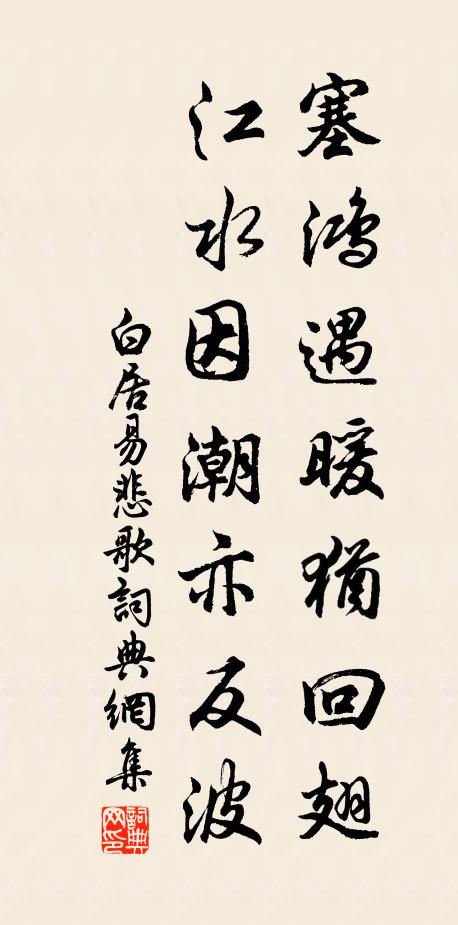 塞鴻遇暖猶回翅
江水因潮亦反波
白居易悲歌詞典網集
詞典网印